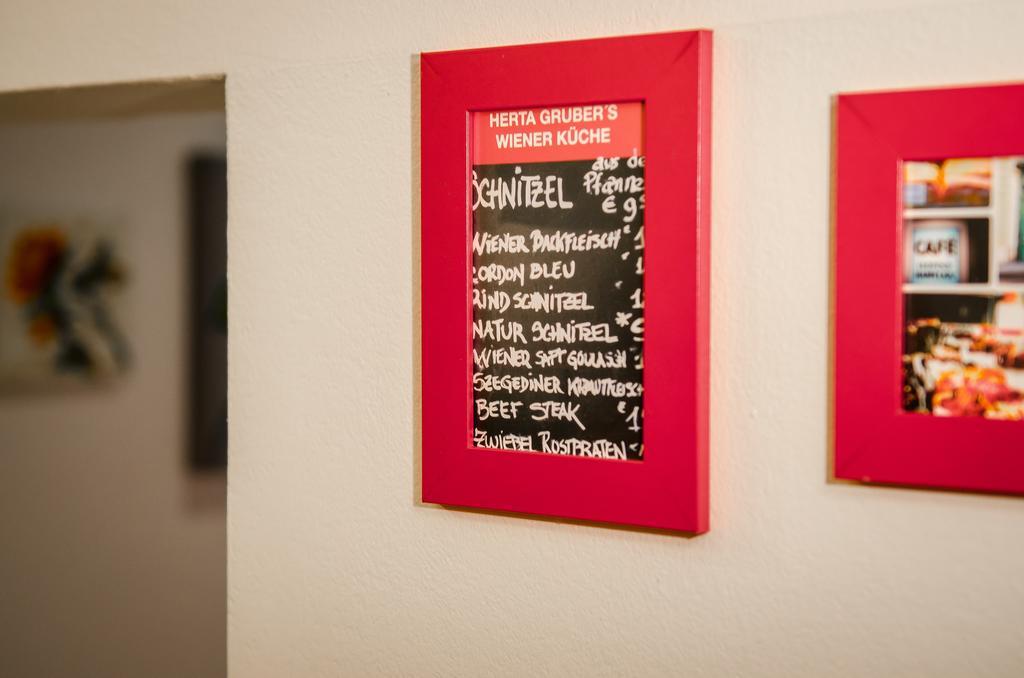 HERTA GRUBER'S
WIENER KÜCHE
SCHNITZEL aus de
Pfanne
€ 9
WIENER BACKFLEISCH € 1
CORDON BLEU 1
RINDSCHNITZEL 1
NATUR SCHNITZEL * 9
WIENER SAFT GOULASCH
SZEGEDINER KRAUTFLEISCH
BEEF STEAK € 1
ZWIEBEL ROSTPRATEN €
CAFÉ